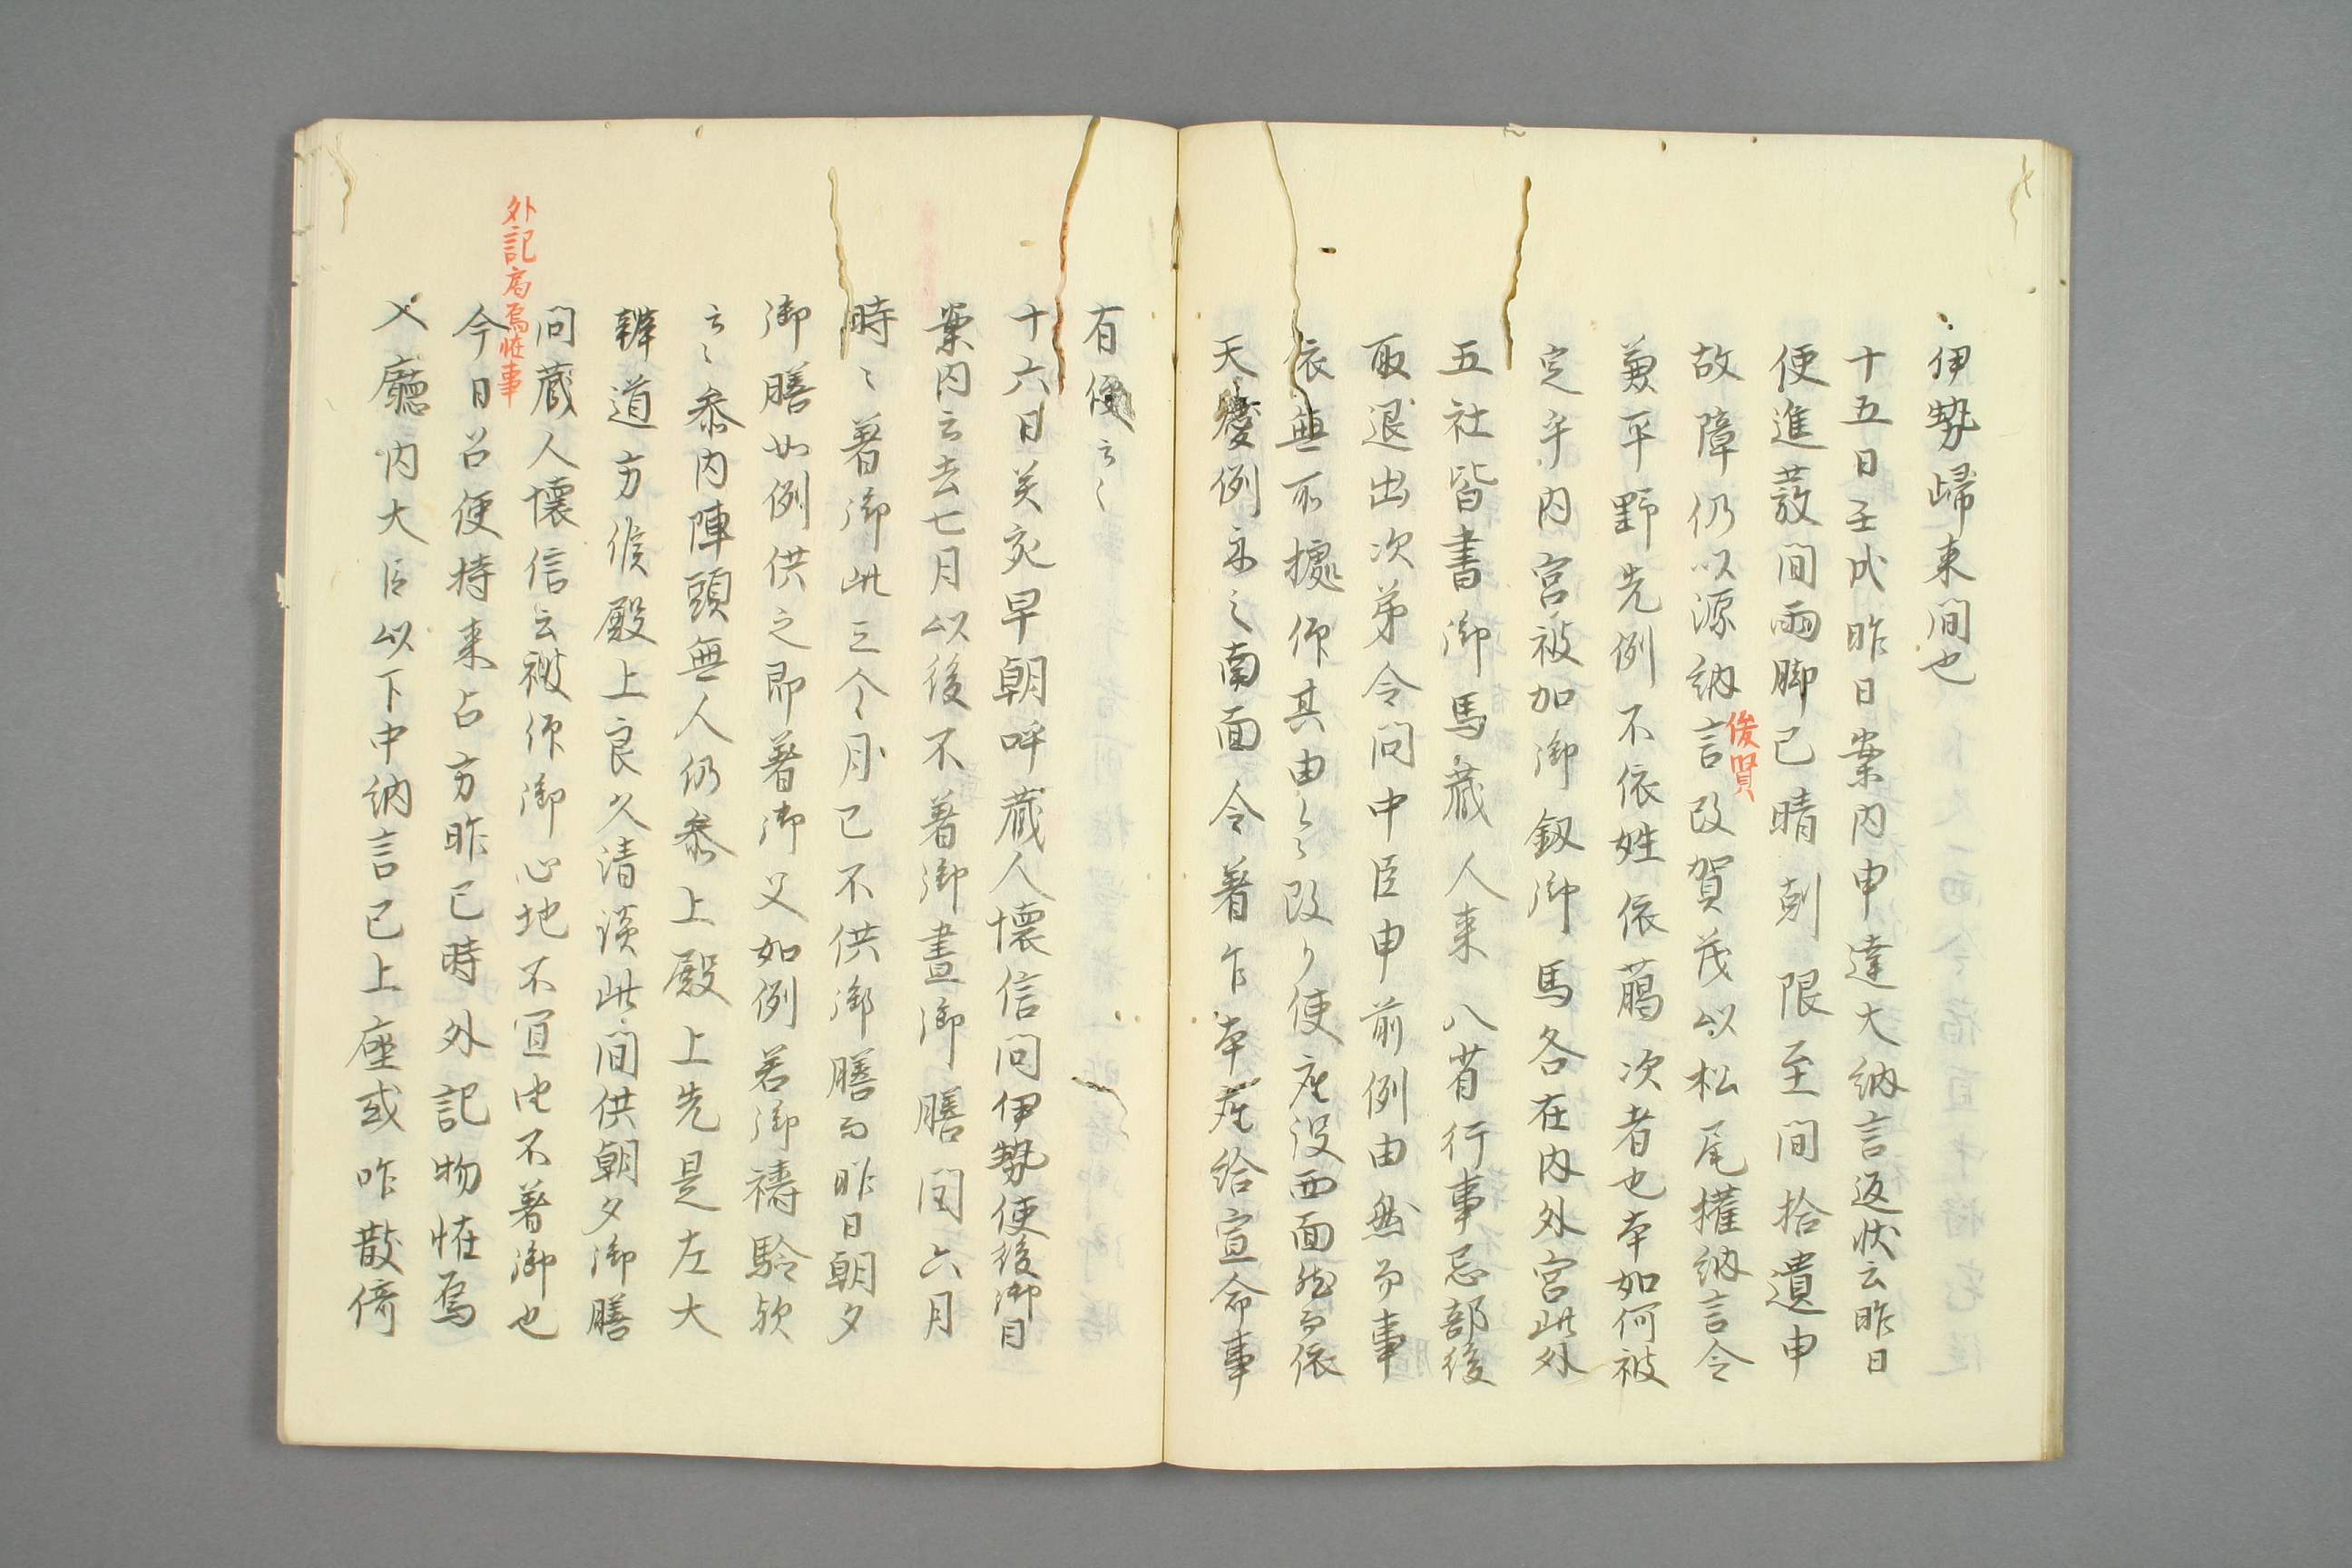 伊勢歸来間也
十五日壬戌昨日案内申達大納言返状云昨日
便進發間雨脚已晴剋限至間拾遺申
故障仍以源納言改賀茂以松尾權納言令
俊賢
兼平野先例不依姓依﨟次者也本如何被
定乎内宮被加御釼御馬各在内外宮此外
五社皆書御馬蔵人来八省行事忌部後
取退出次第令問中臣申前例由然而事
依無所據仰其由々々改使座設西面然而依
天慶例南面令著乍本座給宣命事
有便云々
十六日癸亥早朝呼蔵人懐信問伊勢使後御目
案内云去七月以後不著御晝御膳閏六月
時々著御此三个月已不供御膳而昨日朝夕
御膳如例供之即著御又如例若御禱驗欤
云々参内陣頭無人仍参上殿上先是左大
辨道方候殿上良久清談此間供朝夕御膳
問蔵人懐信云被仰御心地不宜由不著御也
外記局烏恠事
今日召使持来占方昨巳時外記物恠烏
入廳内大臣以下中納言已上座或咋散倚